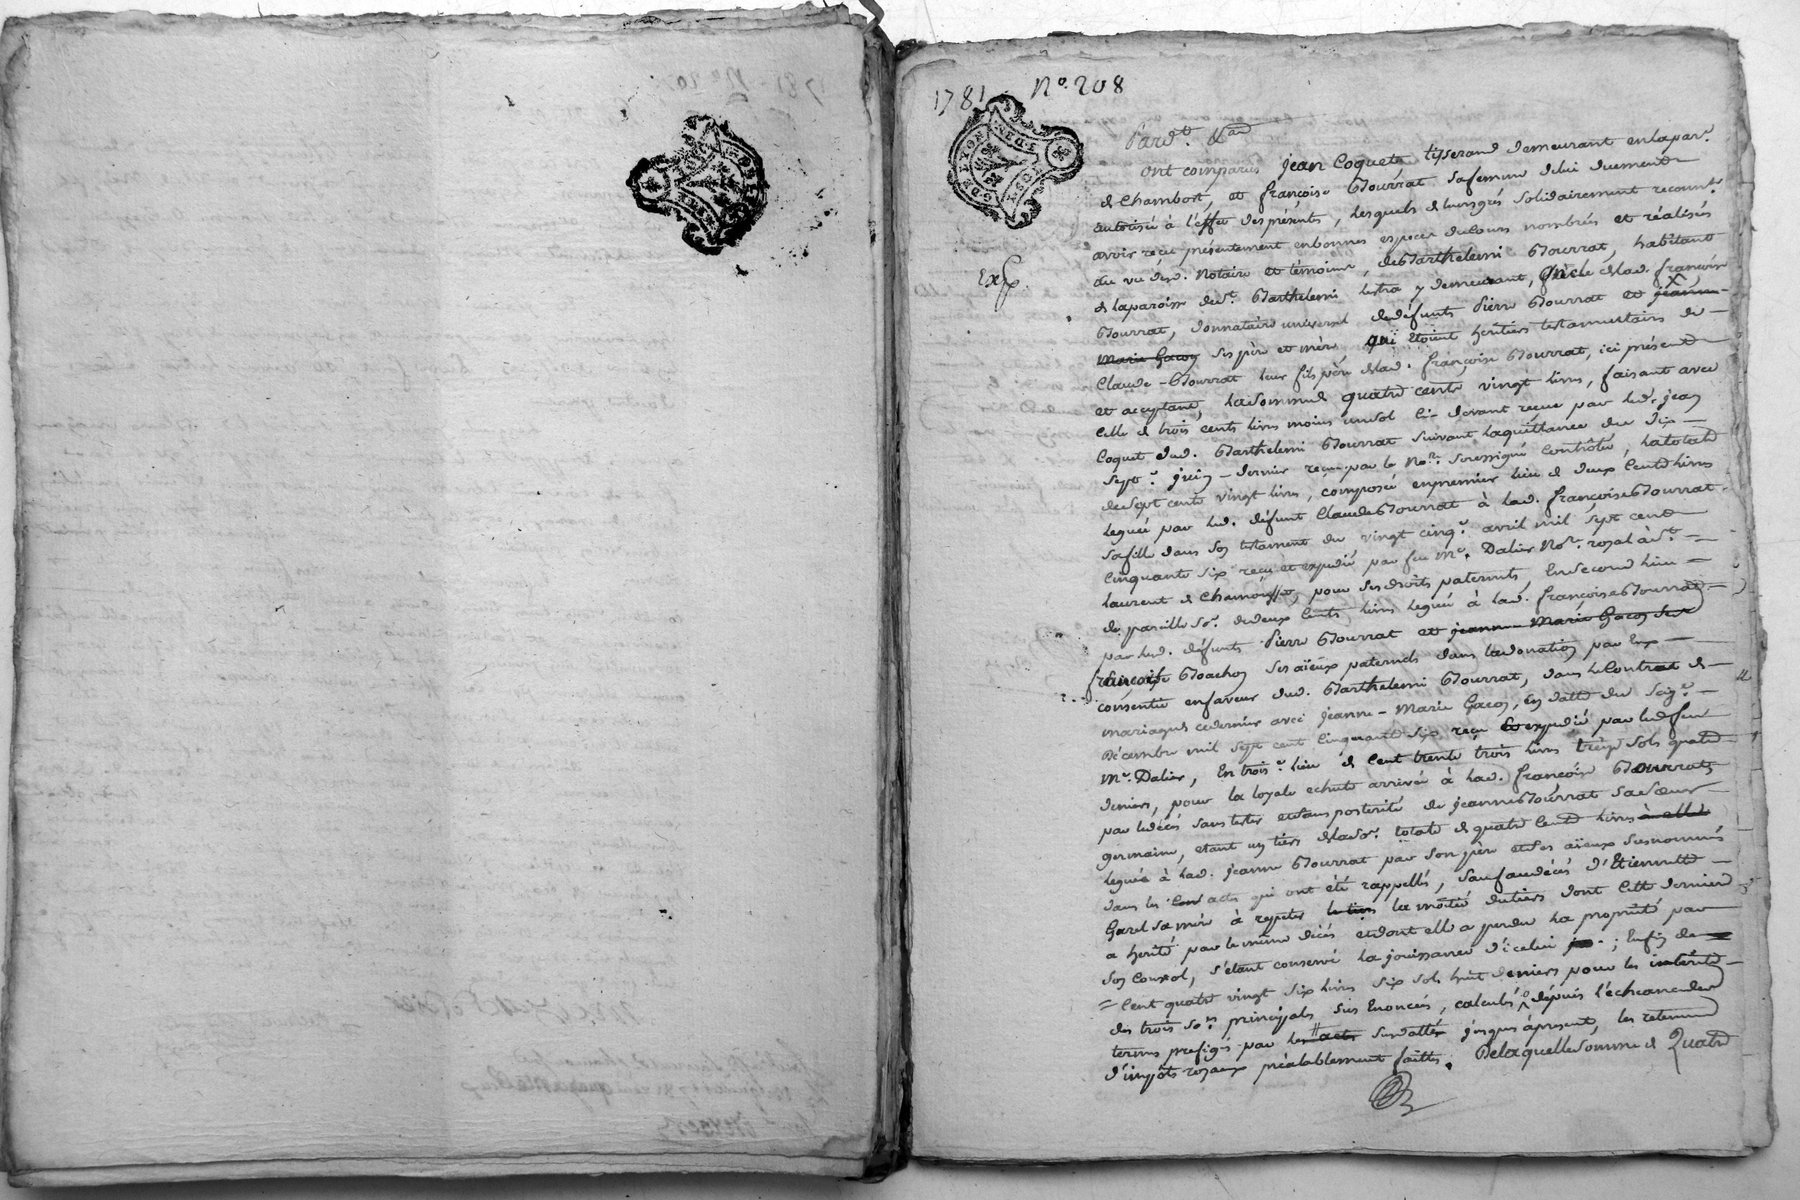 1781 N.º 208
G. DE LYON
Pard.t
ont comparus jean Coquet tisserand demeurant en la par.e
de Chambost, et françoise Bourrat sa femme de lui duement
autorisé à l'effet des présentes, lesquels de leurs grés solidairement reconn.t
avoir reçu présentement en bonnes especes du cours nombrés et réalisés
au vu dud. Notaire et témoins, de Barthelemi Bourrat, habitant
Exp.
de la paroisse de S.t Barthelemi lestra y demeurant, oncle de lad. françoise
Bourrat, donnataire universel de défunts Pierre Bourrat et jeanne
Marie Gacon ses père et mère qui étoient héritiers testamentaires de
Claude Bourrat leur fils père de lad. françoise Bourrat, ici présent
et acceptant, la somme de quatre cents vingt livres, faisant avec
celle de trois cents livres moins un sol ci-devant reçue par led. jean
Coquet dud. Barthelemi Bourrat suivant la quittance du dix
sept.e juin dernier reçue par le No.re soussigné contrôlée, la totale
de sept cents vingt livres, composée en premier lieu de deux cents livres
leguée par led. défunt Claude Bourrat à lad. françoise Bourrat
sa fille dans son testament du vingt cinq.e avril mil sept cent
cinquante six reçu et expedié par feu M.e Dalier No.re royal à S.t
laurent de Chamousset, pour ses droits paternels, En second lieu
de pareille so.e de deux cents livres leguée à lad. françoise Bourrat
par led. défunts Pierre Bourrat et jeanne Marie Gacon
françoise Bachon ses aïeux paternels dans la donation par Eux
consentie en faveur dud. Barthelemi Bourrat, dans le Contrat de
mariage ce dernier avec jeanne-Marie Gacon, En datte du
Décembre mil sept cent cinquante six reçu et expedié par led. feu
M.e Dalier, En trois.e lieu de cent trente trois livres treize sols quatre
deniers, pour la loyale echute arrivée à lad. françoise Bourrat
par le décés sans tester et sans posterité de jeanne Bourrat sa soeur
germaine, etant un tiers de la so.e totale de quatre cents livres à elle
leguée à lad. jeanne Bourrat par son père et ses aïeux susnommés
dans les Cont actes qui ont été rappellés, sauf au décés d'Etiennette
Garel sa mère à repeter le tiers la moitié du tiers dont cette derniere
a herité par le même décés et dont elle a perdu la proprieté par
son convol, s'étant conservé la jouissance d'icelui ; Enfin de
Cent quatre vingt six livres six sols huit deniers pour les intérêts
des trois so.es principales sus Enoncées, calculés depuis l'échéance des
termes prefigés par les actes susdattés jusques à present, les retenues
d'impôts royaux préalablement faittes. De laquelle somme de Quatre